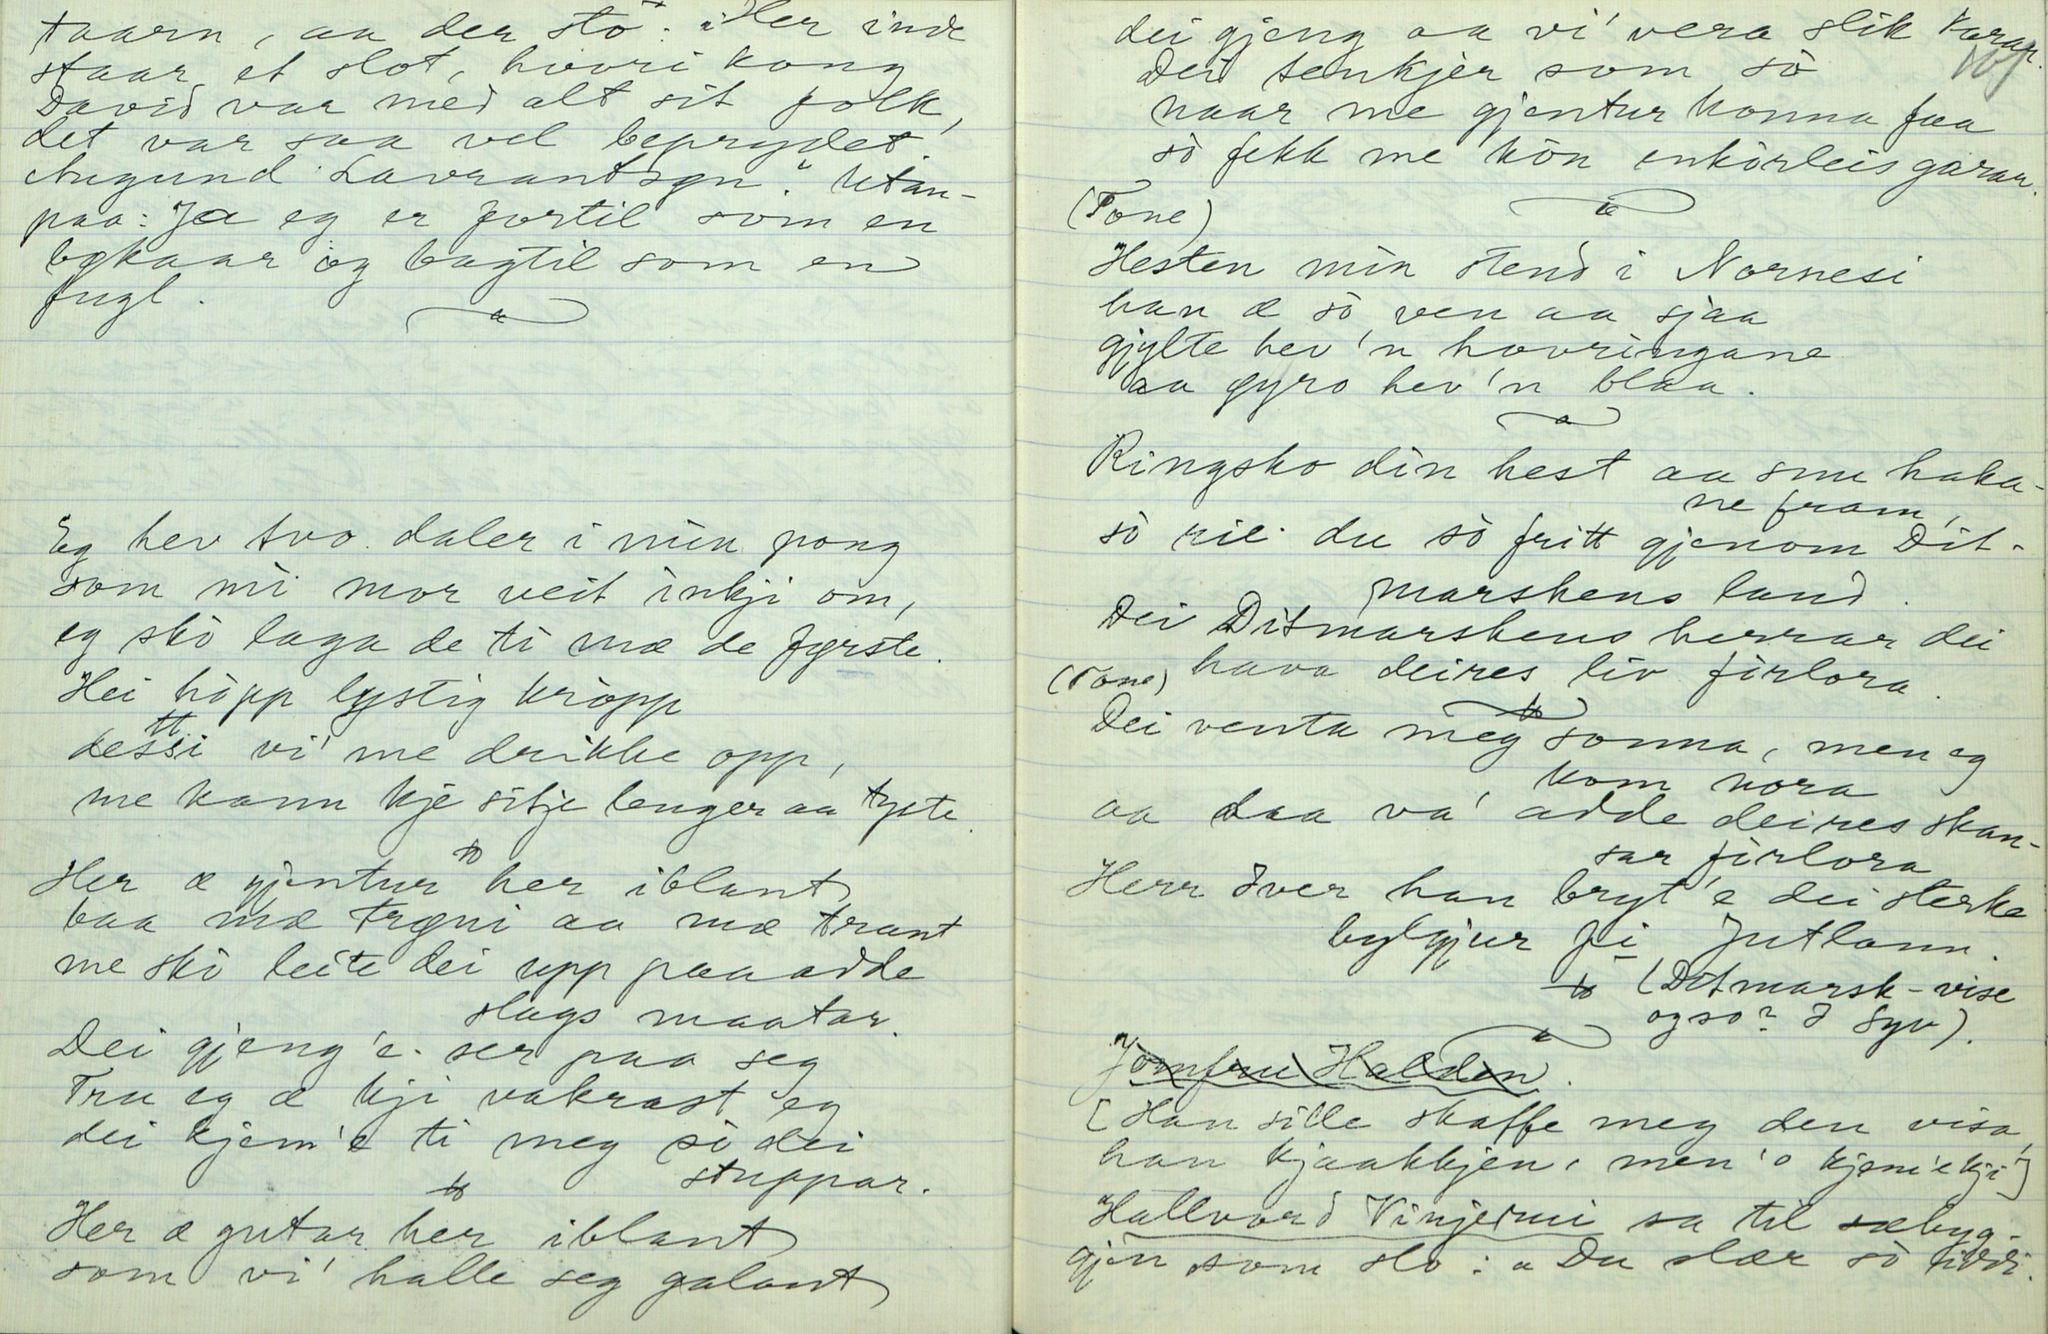 taarn, aa der stò: "Her inde
staar et slot, hvori kong
David var med alt sit folk,
det var saa vel beprydet
Augund Lavrantsøn." Utan-
paa: Ja eg er fortil som en
bøkaar og bagtil som en
fugl.
Eg hev tvo daler i min pong
som mi mor veit inkji om,
eg skò laga de ti mæ de fyrste.
Hei hòpp lystig kròpp
dettsi vi' me drikke opp,
me kann kje sitje lenger aa tyste.
Her æ gjentur her iblant
baa mæ trøni aa mæ trant
me skò leite dei upp paa adde
slags maatar.
Dei gjeng'e ser paa seg
Tru eg æ kji vakrast eg
dei kjem'e ti meg sò dei
stuppar.
Her æ gutar her iblant
som vi' halle seg galant
dei gjeng aa vi' vera slik karar.
Dei tenkjer som sò
naar me gjentur konna faa
sò fekk me kòn enkòrleis garar.
(Tone)
Hesten min stend i Nornesi
han æ sò ven aa sjaa
gjylte hev'n hovringane
aa gyro hev'n blaa.
Ringsko din hest aa snu haka-
ne fram,
sò rie du sò fritt gjenom Dit-
marskens land.
Dei Ditmarskens herrar dei
hava deires liv fòrlora.
(Tone)
Dei venta meg sonna, men eg
kom nora
aa daa va' adde deires skan-
sar fòrlora
Herr Iver han bryt'e dei sterke
bylgjur fi Jutlann.
(Ditmarsk-vise
ogso? I Syv).
Jomfru Halden.
[Han sille skaffe meg den visa,
han kjaakkjen, men'o kjem'e kji]
Hallvord Vinjerui sa til sæbyg-
gjen som slo: "Du slær sò